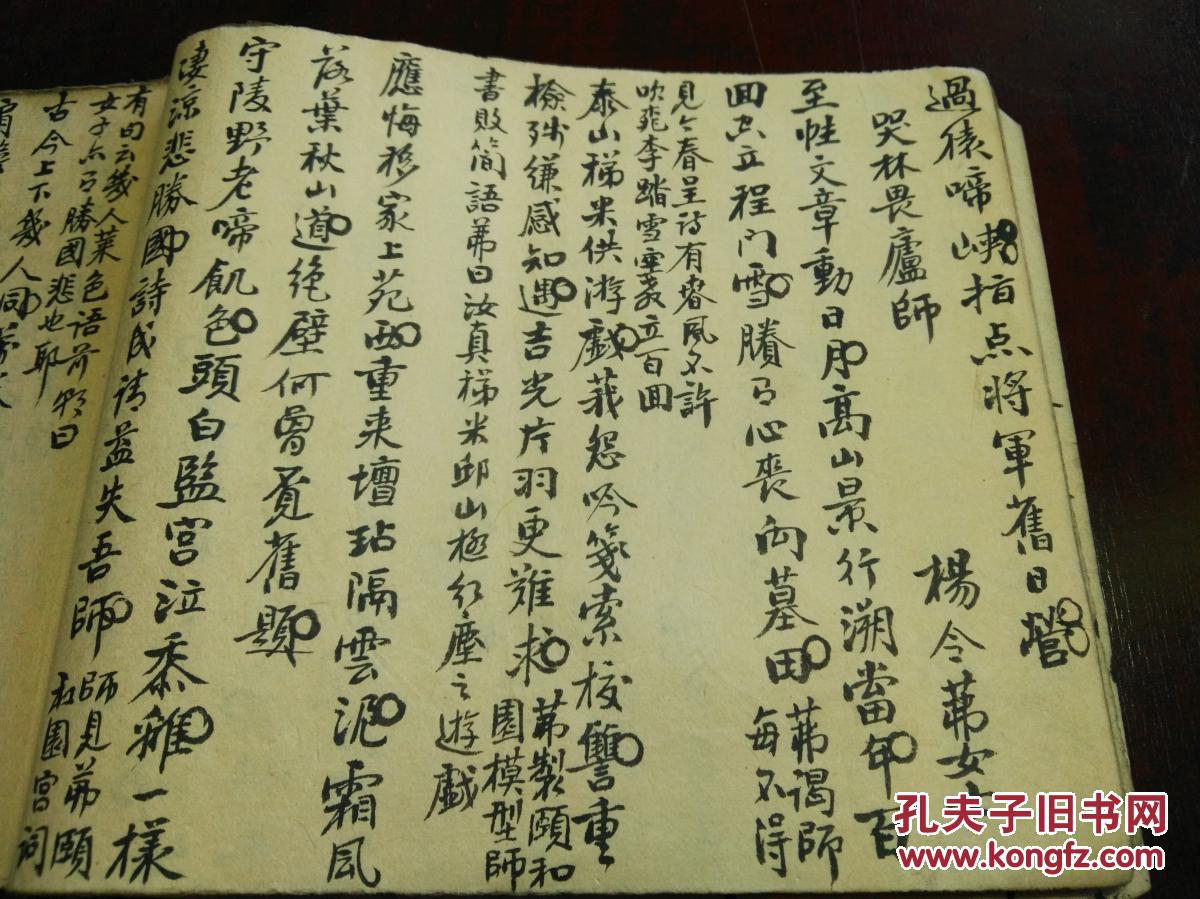 過猿啼峽指点將軍舊日營
哭林畏廬師
楊令茀女士
至性文章動日月高山景行溯當年百
回立程門雪賸有心喪向墓田
茀謁師
每不得
見今春呈詩有春風不許
吹飛李踏雪重教立百回
泰山稊米供游戲莪怨吟箋索校讐重
檢殘縑感知遇吉光片羽更難求
茀製頤和
園模型師
書敗簡語茀曰汝真稊米邱山極紅塵之遊戲
應悔移家上苑西重来壇坫隔雲泥霜風
落葉秋山道绝壁何曾覓舊題
守陵野老啼飢色頭白監宮泣黍離一樣
淒涼悲勝國詩成請益失吾師
師見茀頤
和園宮詞
有句云幾人菜色語前朝曰
女子亦有勝國悲也耶
古今上下幾人同
孔夫子旧书网
www.kongfz.com